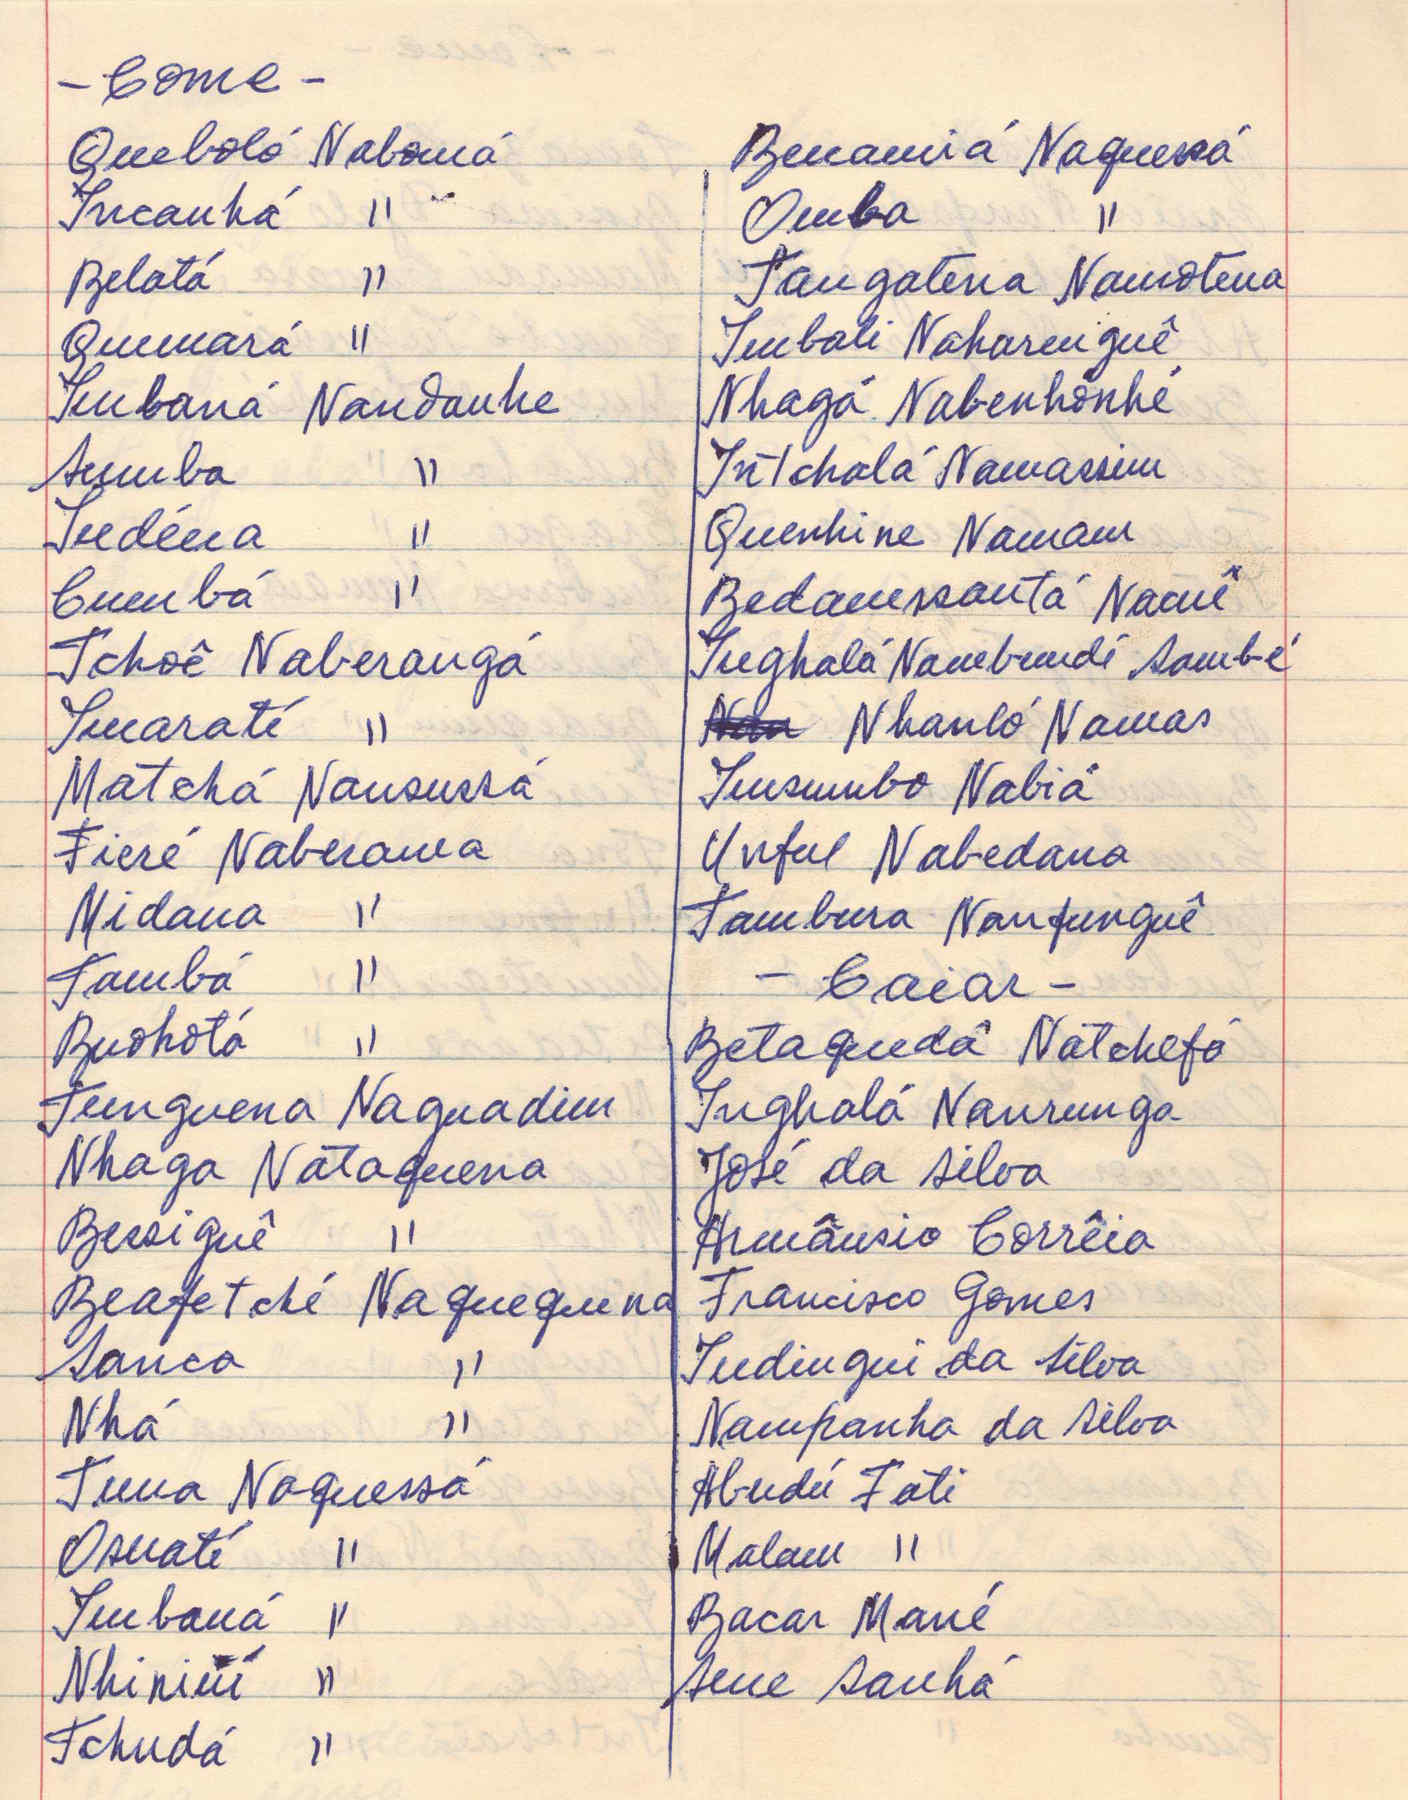 - Come -
Queboló Nabomá
Incanhá "
Belatá "
Quemará "
Imbaná Nandanhe
Sumba "
Indéna "
Cumbá "
Tchoê Naberangá
Imaraté "
Matchá Nansussá
Fieré Naberama
Midana "
Tambá "
Buohotá "
Tunguena Naguadim
Nhaga Nataquena
Bessiguê "
Beafetché Naquequena
Sanca "
Nhá "
Tuna Naquessá
Osuaté "
Imbaná "
"
Tchudá "
Benamiá Naquessá
Omba "
Tangatena Namotena
Imbali Naharniguê
Nhagá Nabenhonhé
Intchalá Namassim
Quenhine Namam
Bedamssantá Namê
Inghalá Nambundé Sambé
Nhanló Namas
Insumbo Nabiá
Unful Nabedana
Tambura Nanfunguê
- Caiar -
Betaquedá Natchefá
Inghalá Nanrunga
José da Silva
Armânsio Corrêia
Francisco Gomes
Indingui da Silva
Nampanha da Silva
Abudú Fati
Malam "
Bacar Mané
Sene Sanhá